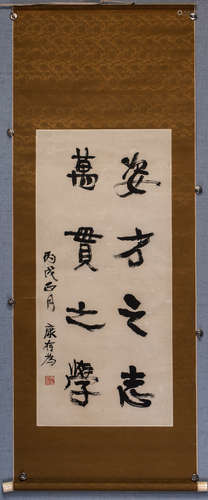 姿方之志
萬貫之學
丙戌正月 康有為